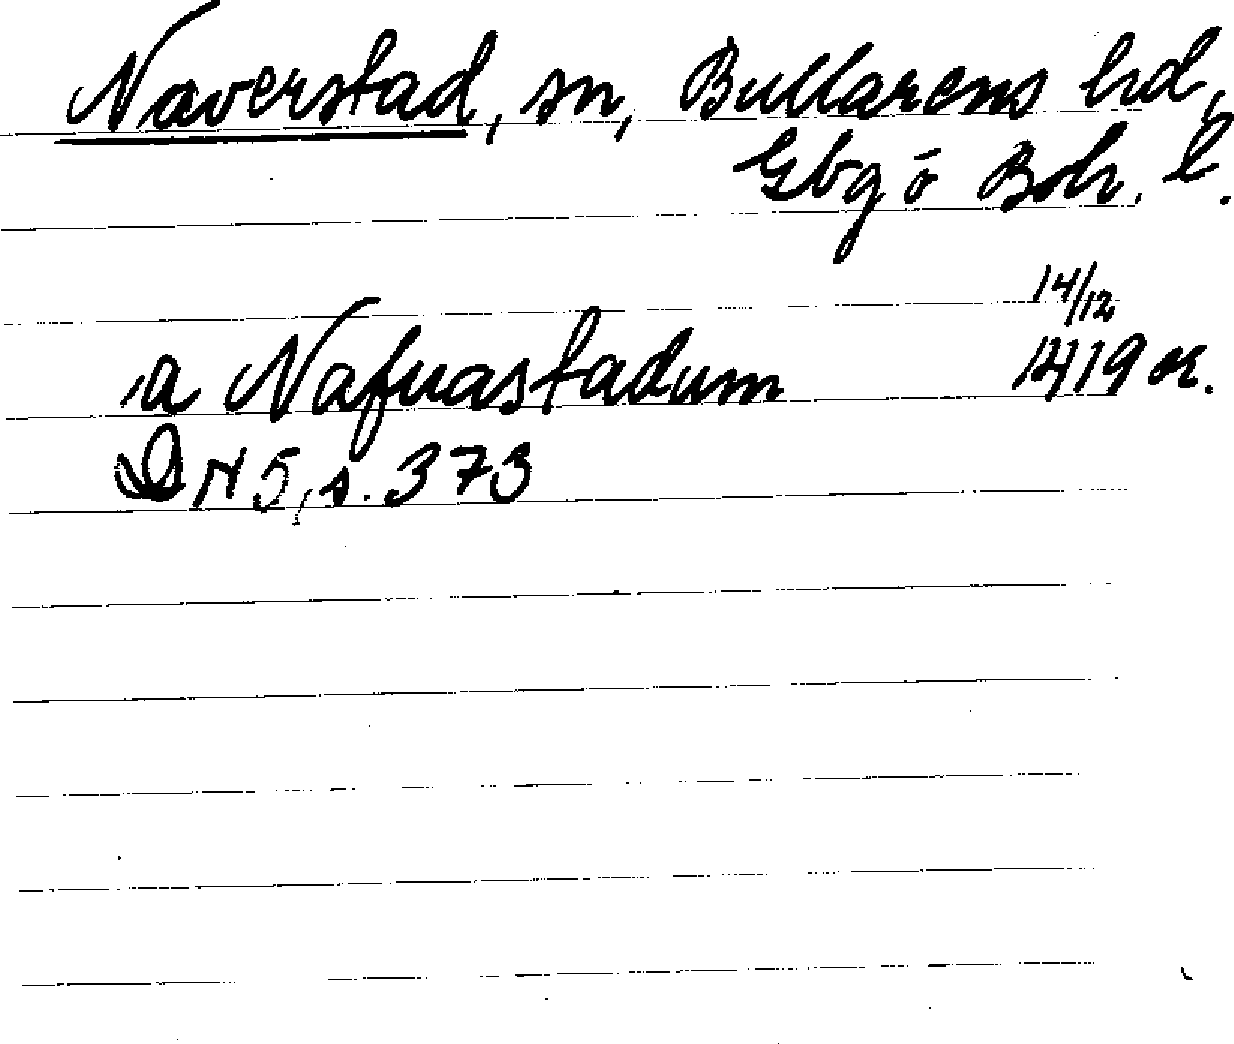 Naverstad, sn, Bullarens hd,
Gbg o Boh. l.
14/12
a Nafuastadum 1419 or.
DN 5, s. 373